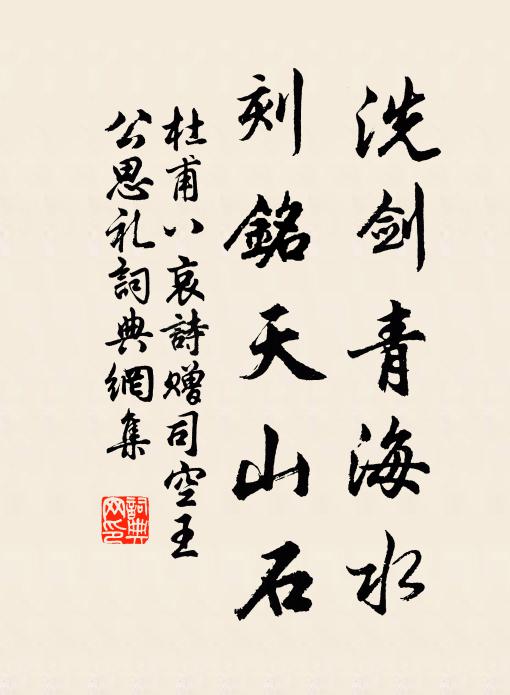 洗剑青海水
刻銘天山石
杜甫八哀詩赠司空王
公思礼詞典網集
詞典
网印